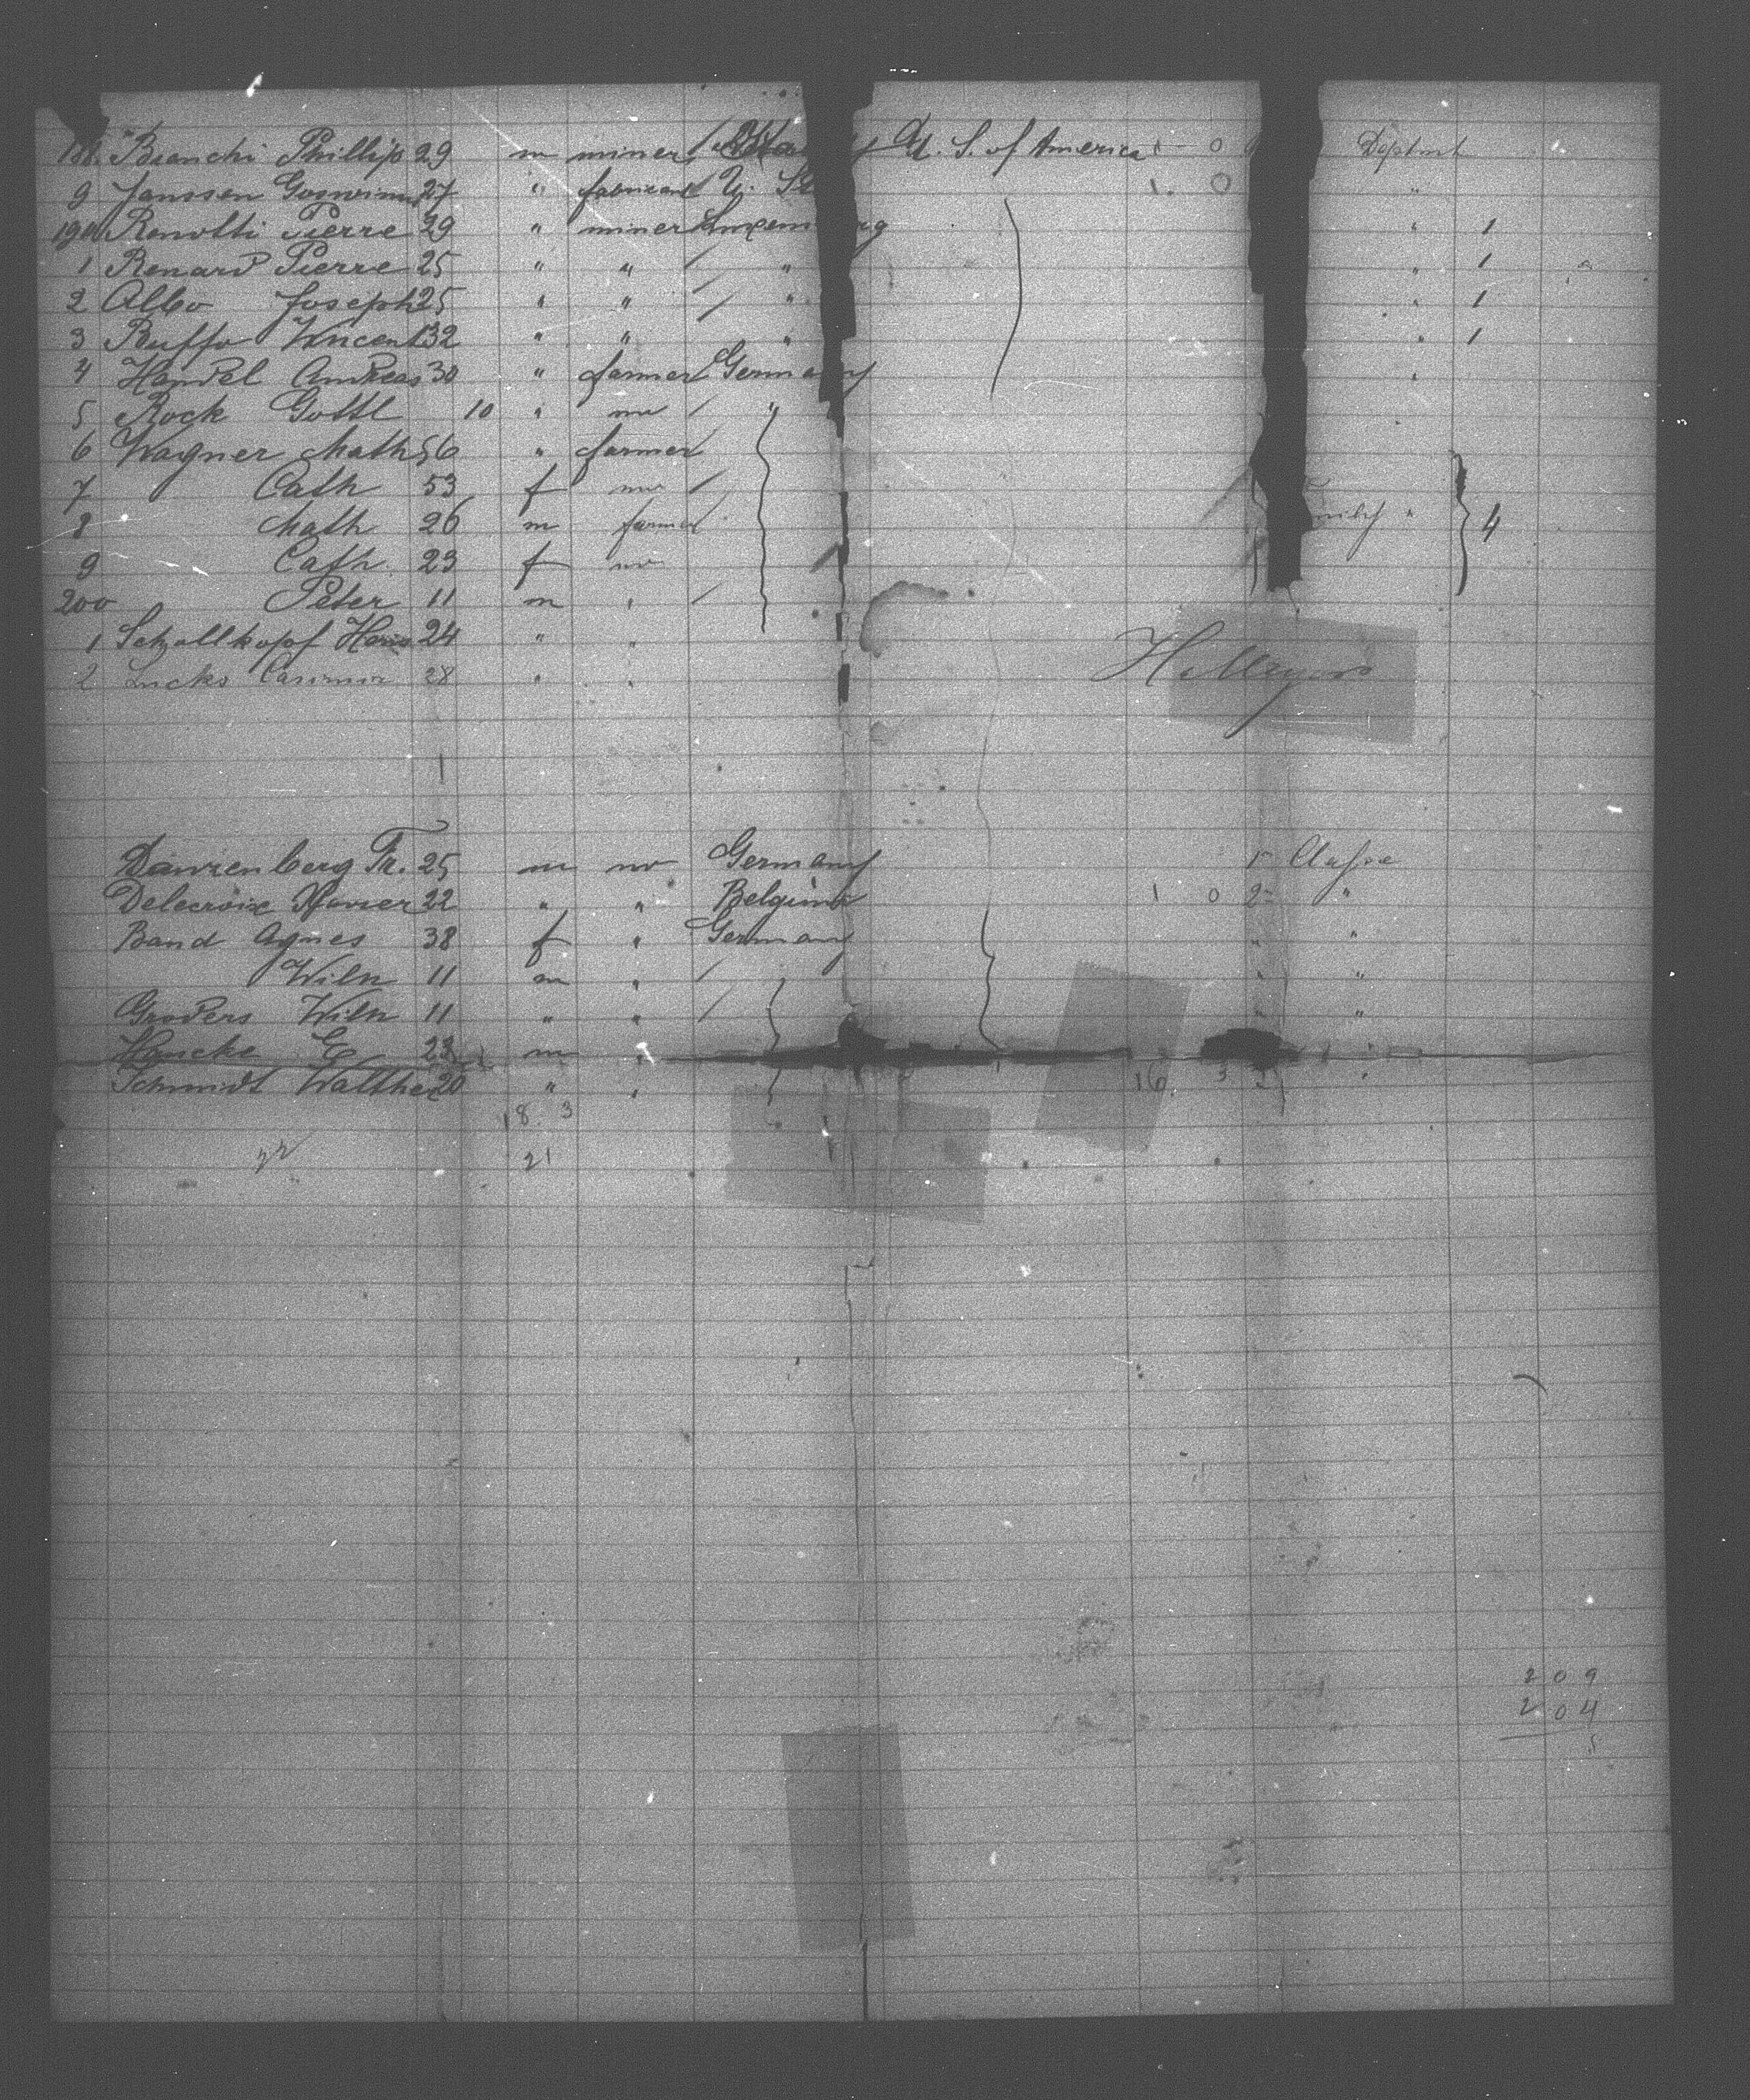 188 Bianchi Phillip 29 m miner U. S. of America 0 Deptmt
9 Janssen 27 " fabricant U. St 1. 0 "
190 Renotti Pierre 29 " miner Luxem rg " 1
1 Renard Pierre 25 " " " " 1
2 Albo Joseph 25 " " " " 1
3 Buffo Vincent 32 " " " " 1
4 Handel Andreas 30 " farmer Germany "
5 Rock Gottl 10 " no "
6 Wagner Math 56 " farmer
7 Cath 53 f no
8 Math 26 m farmer " 4
9 Cath 23 f no
200 Peter 11 m "
1 Schollkopf Hans 24 " "
2 Lucks Casimir 28 " "
H Meyers
Dannenberg Fr. 25 m no Germany
Delecroix Xavier 22 " " Belgium 1 0 2 "
Band Agnes 38 f " Germany " "
Wilh 11 m " " "
Groders Wilh 11 " " " "
Hancke E 23 m "
Schmidt Walther 20 " " 16 3
18 3
21
209
204
5